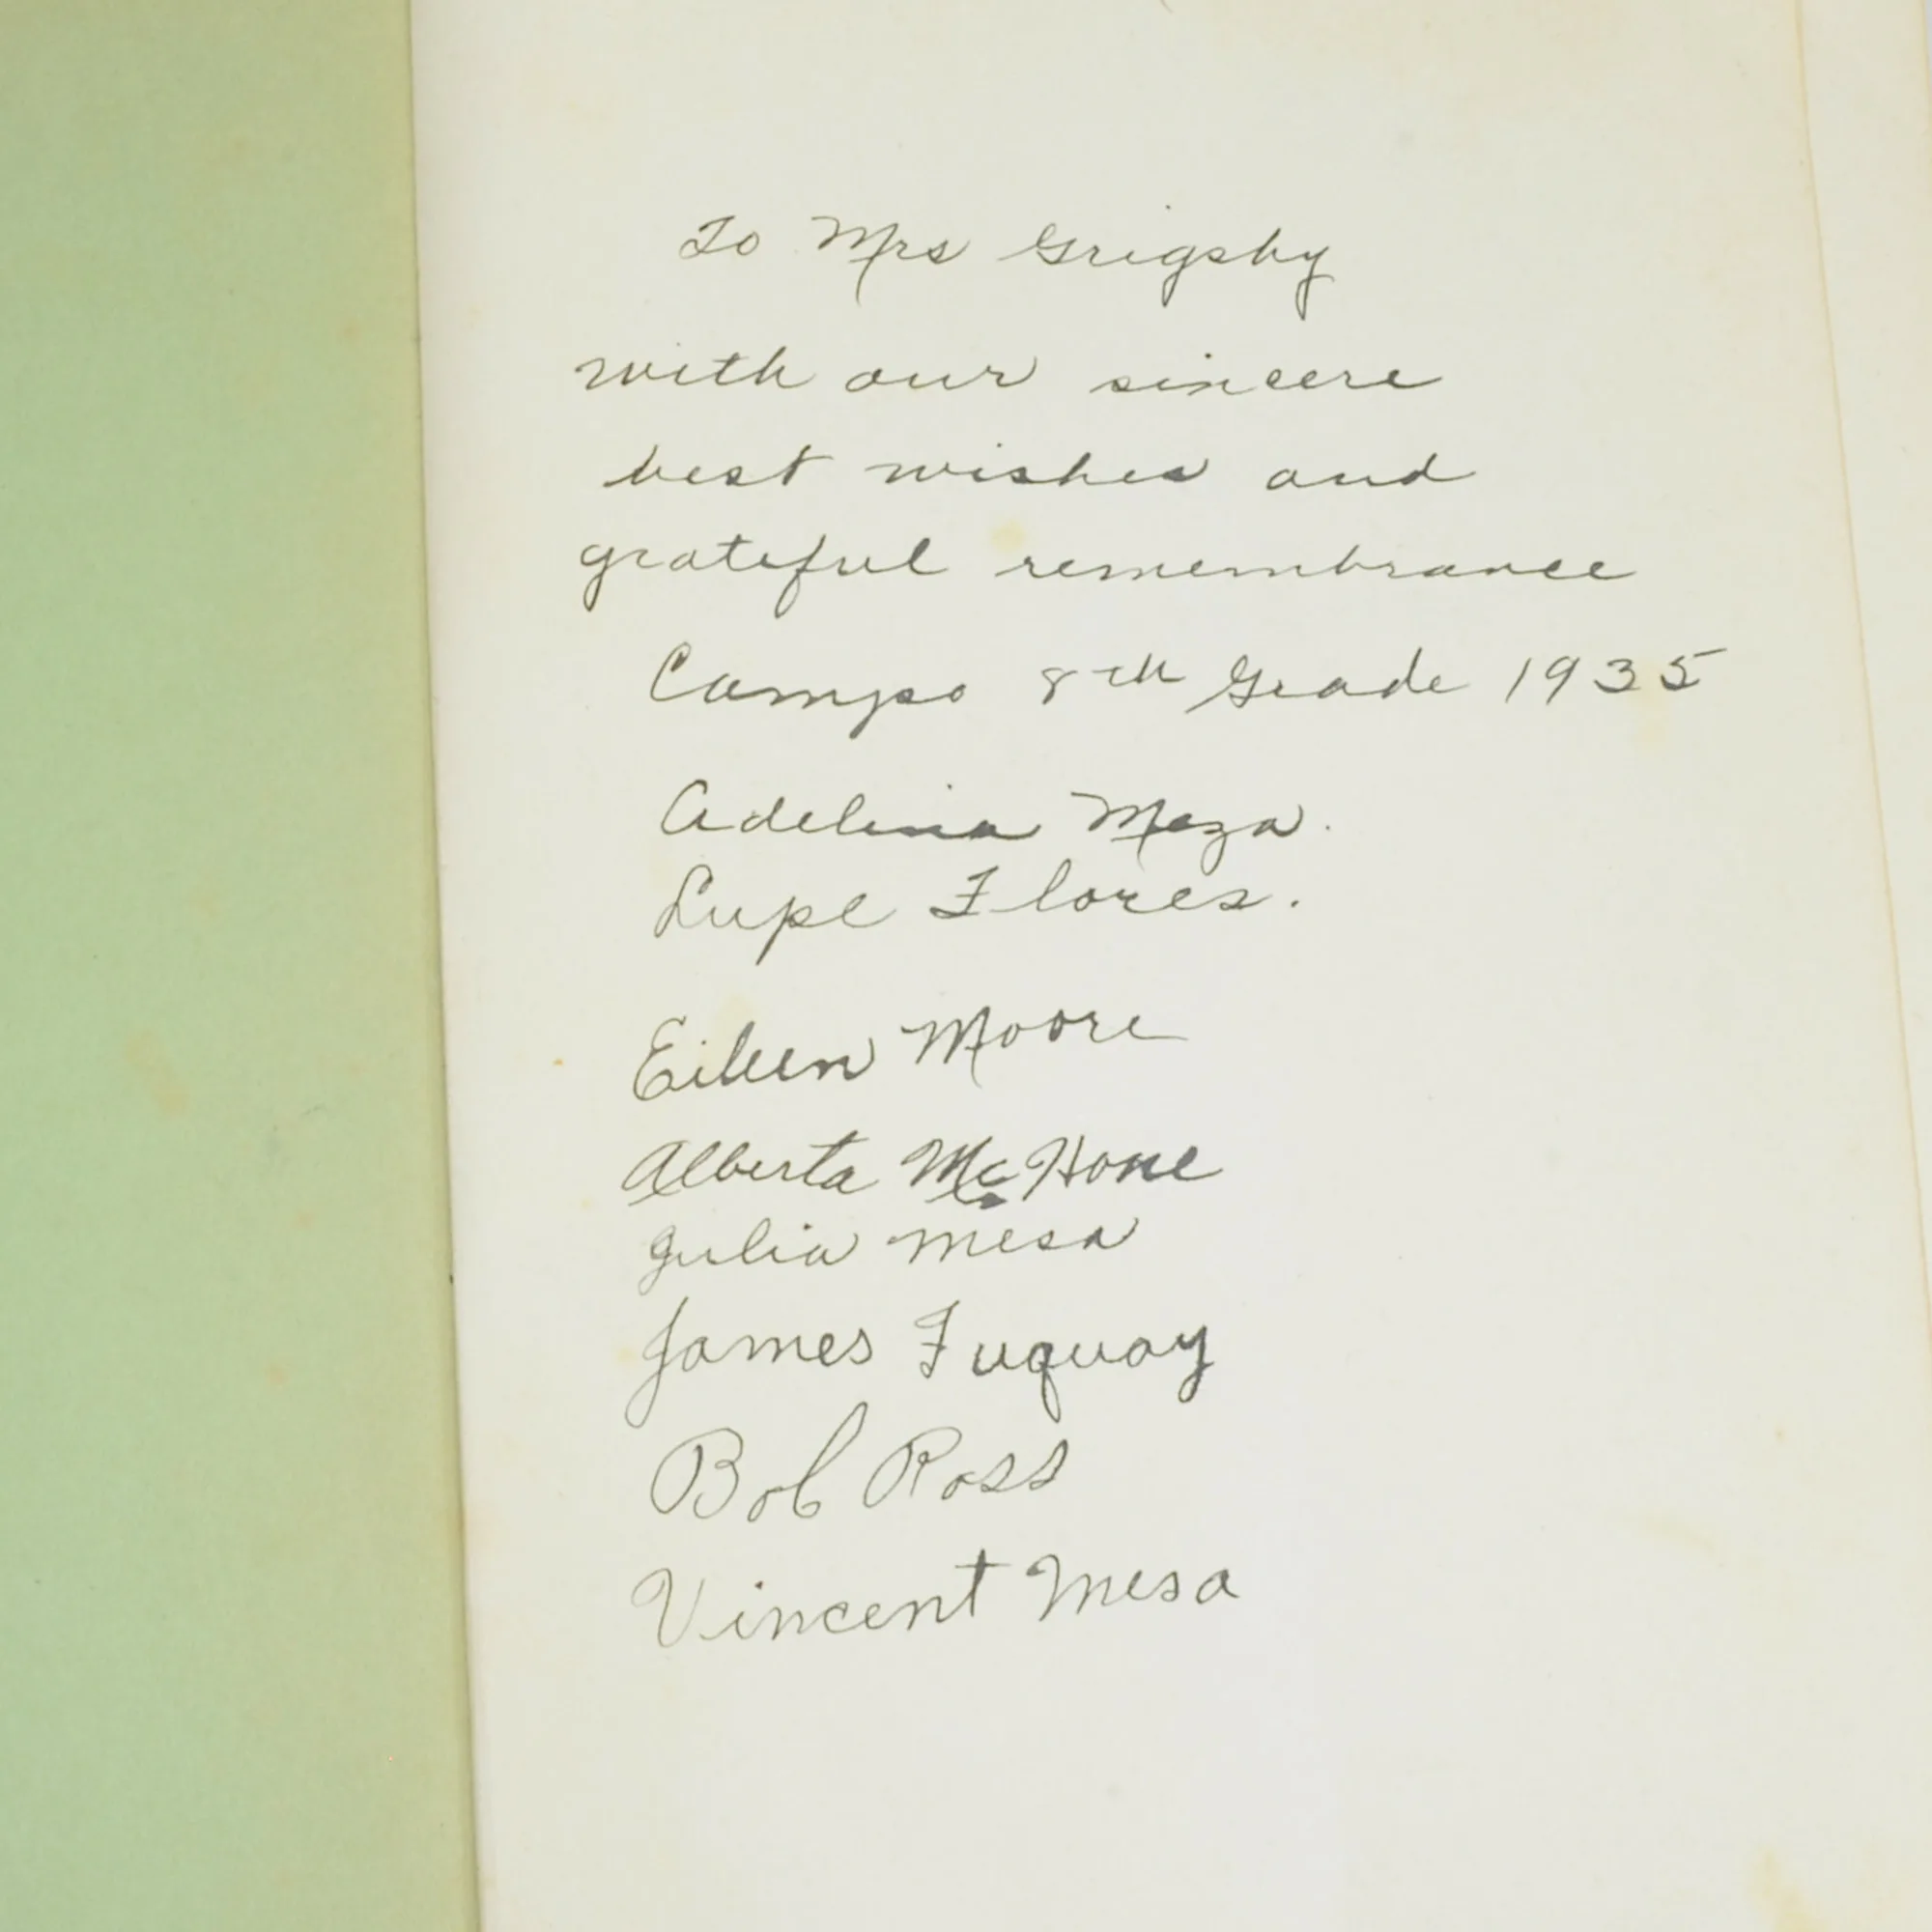 To Mrs Grigsby
with our sincere
best wishes and
grateful remembrance
Campo 8th Grade 1935
Adelina Meza.
Lupe Flores.
Eileen Moore
Alberta McHone
Julia Mesa
James Fuquay
Bob Ross
Vincent Mesa